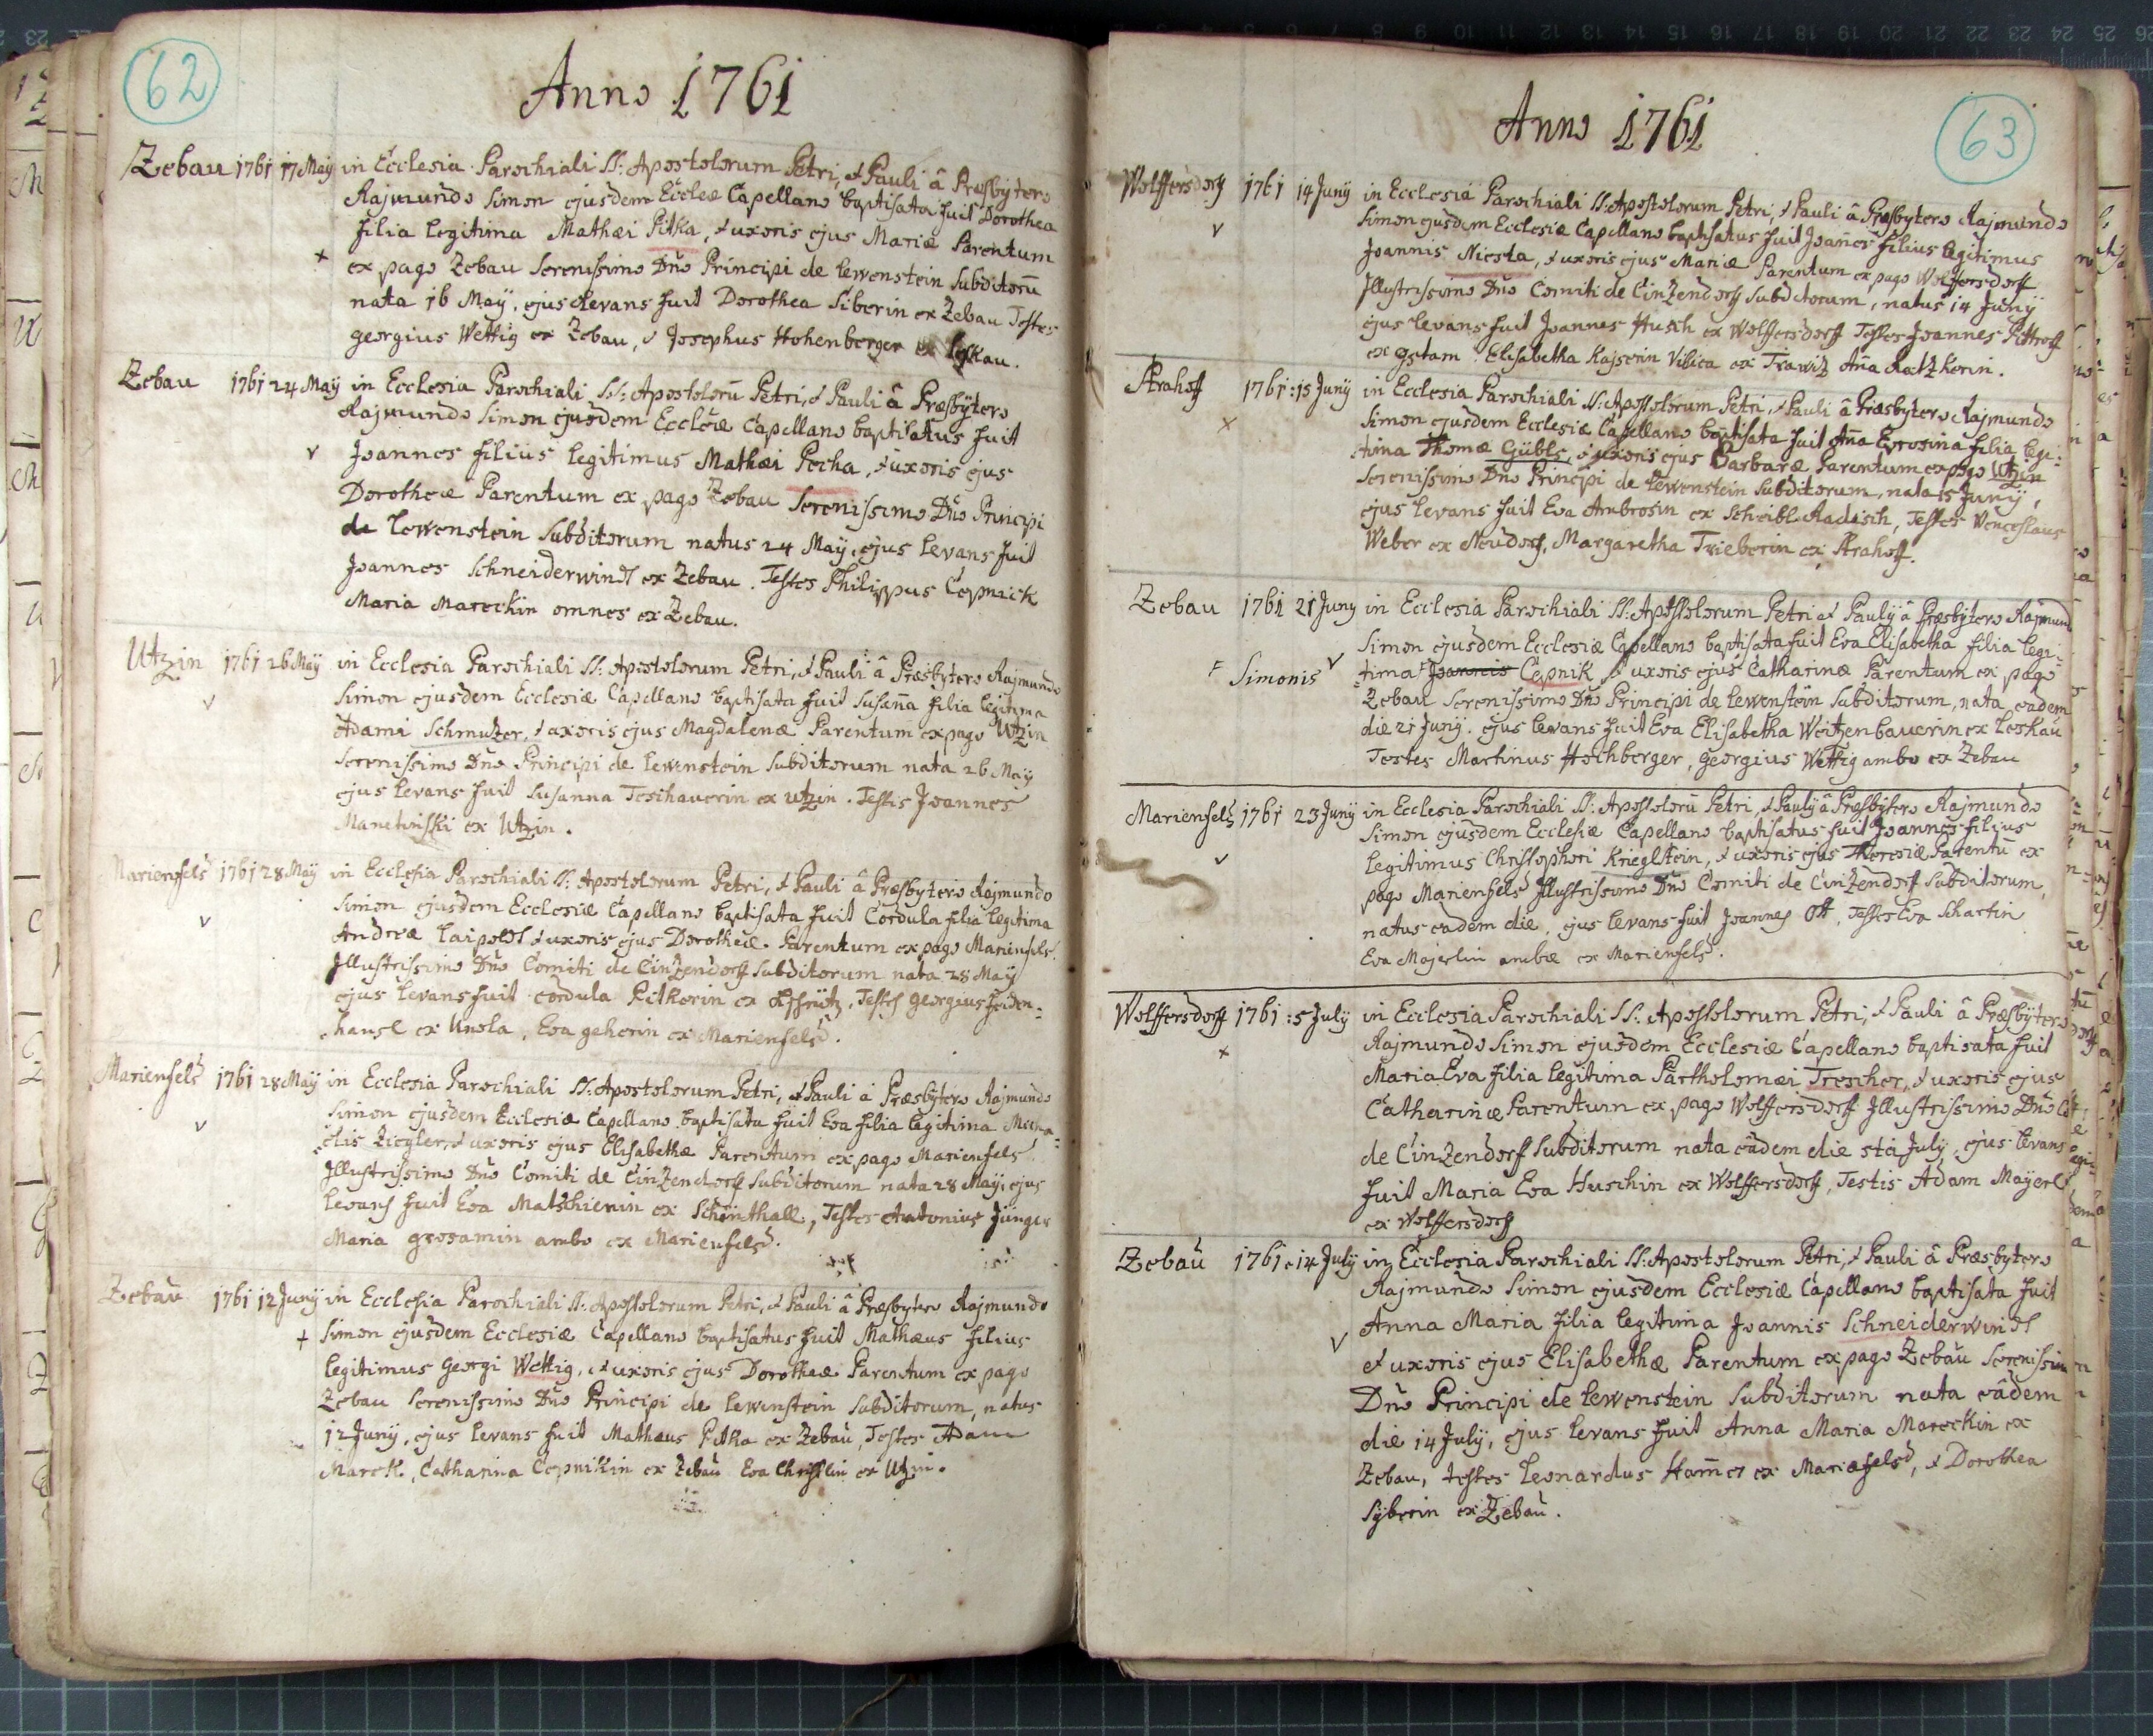 62
Anno 1761
Zebau 1761 17 May in Ecclesia Parochiali SS: Apostolorum Petri, et Pauli â Præsbytero
Rajmundo Simon ejusdem Eccleæ Capellano baptisata fuit Dorothea
filia legitima Mathæi Pitka, et uxoris ejus Mariæ Parentum
ex pago Zebau Serenissimo Dno Principi de Lewenstein Subditorū
nata 16 May, ejus levans fuit Dorothea Siberin ex Zebau Testes
georgius Wettig ex Zebau, et Josephus Hohenberger ex Leskau.
Zebau 1761 24 May in Ecclesia Parochiali SS: Apostolorū Petri, et Pauli â Præsbytero
Rajmundo Simon ejusdem Eccleiæ Capellano baptisatus fuit
v Joannes filius legitimus Mathæi Pecha, et uxoris ejus
Dorotheæ Parentum ex pago Zebau Serenissimo Dno Principi
de Lewenstein Subditorum natus 24 May, ejus levans fuit
Joannes Schneiderwindt ex Zebau. Testes Philippus Cepnick
Maria Mareckin omnes ex Zebau.
Utzin 1761 26 May in Ecclesia Parochiali SS: Apostolorum Petri, et Pauli â Præsbytero Rajmundo
Simon ejusdem Ecclesiæ Capellano baptisata fuit Susaña filia legitima
v Adami Schmutzer, et uxoris ejus Magdalenæ Parentum ex pago Utzin
Serenissimo Dno Principi de Lewenstein Subditorum nata 26 May
ejus levans fuit Susanna Teschauerin ex Utzin. Testis Joannes
Manetinski ex Utzin.
Marienfels 1761 28 May in Ecclesia Parochiali SS: Apostolorum Petri, et Pauli â Præsbytero Rajmundo
Simon ejusdem Ecclesiæ Capellano baptisata fuit Cordula filia legitima
v Andreæ Laipoldt et uxoris ejus Dorotheæ. Parentum ex pago Marienfels.
Illustrissimo Dno Comiti de Cinzendorff Subditorum nata 28 May
ejus levans fuit cordula Pitkerin ex Testes georgius Heiden-
hansl ex Unola, Eva geherin ex Marienfelsd.
Marienfels 1761 28 May in Ecclesia Parochiali SS: Apostolorum Petri, et Pauli â Præsbytero Rajmundo
Simon ejusdem Ecclesiæ Capellano baptisata fuit Eva filia legitima Micha-
v elis Ziegler, et uxoris ejus Elisabethæ Parentum ex pago Marienfels
Illustrissimo Dno Comiti de Cinzendorf Subditorum nata 28 May, ejus
levans fuit Eva Matschienin ex Schönthall, Testes Antonius Jünger
Maria grosamin ambo ex Marienfelsd.
Zebau 1761 12 Juny in Ecclesia Parochiali SS: Apostolorum Petri, et Pauli â Præsbytero Rajmundo
+ Simon ejusdem Ecclesiæ Capellano baptisatus fuit Mathæus filius
legitimus Georgi Wettig, et uxoris ejus Dorotheæ Parentum ex pago
Zebau Serenissimo Dno Principi de Lewenstein Subditorum, natus
12 Juny, ejus levans fuit Mathæus Pitka ex Zebau, Testes Adam
Marek, Catharina Cepnikin ex Zebau Eva Christlin ex Utzin.
63
Anno 1761
Wolffersdorf 1761 14 Juny in Ecclesia Parochiali SS: Apostolorum Petri, et Pauli â Præsbytero Rajmundo
Simon ejusdem Ecclesiæ Capellano baptisatus fuit Joañes filius legitimus
v Joannis Niesta, et uxoris ejus Mariæ Parentum ex pago Wolffersdorff
Illustrissimo Dno Comiti de Cinzendorf Subditorum, natus 14 Juny
ejus levans fuit Joannes Husch ex Wolffersdorff Testes Joannes Pettroff
ex gstam. Elisabetha Kajserin Vilica ex Trawitz Aña Ratzkerin.
Strahoff 1761: 15 Juny in Ecclesia Parochiali SS: Apostolorum Petri, et Pauli â Præsbytero Rajmundo
Simon ejusdem Ecclesiæ Capellano baptisata fuit Aña Eprosina filia legi:
x tima Thomæ Gübls, et uxoris ejus Barbaræ Parentum ex pago Utzin
Serenissimo Dno Principi de Lewenstein Subditorum, nata 15 Juny,
ejus levans fuit Eva Ambrosin ex Scheibl Radisch, Testes Venceslaus
Weber ex Neudorf, Margaretha Trieberin ex Strahoff.
Zebau 1761 21 Juny in Ecclesia Parochiali SS: Apostolorum Petri et Pauly â Præsbytero Rajmund
Simon ejusdem Ecclesiæ Capellano baptisata fuit Eva Elisabetha filia legi-
Simonis v tima Cepnik et uxoris ejus Catharinæ Parentum ex pago
Zebau Serenissimo Dno Principi de Lewenstein Subditorum, nata eadem
die 21 Juny. ejus levans fuit Eva Elisabetha Weitzenbauerin ex Leskau
Testes Martinus Hochberger, georgius Wettig ambo ex Zebau
Marienfels 1761 23 Juny in Ecclesia Parochiali SS: Apostolorū Petri, et Pauly â Præsbytero Rajmundo
Simon ejusdem Ecclesiæ Capellano baptisatus fuit Joannes filius
v legitimus Christophori Krieglstein, et uxoris ejus Theresiæ Parentū ex
pago Marienfelsd Illustrissimo Dno Comiti de Cinzendorf Subditorum,
natus eadem die, ejus levans fuit Joannes Ott, Testes Eva Schartin
Eva Majerlin ambæ ex Marienfelsd.
Wolffersdorff 1761: 5 July in Ecclesia Parochiali SS: Apostolorum Petri, et Pauli â Præsbytero
x Rajmundo Simon ejusdem Ecclesiæ Capellano baptisata fuit
Maria Eva filia legitima Partholomæi Trescher, et uxoris ejus
Catharinæ Parentum ex pago Wolffersdorff Illustrissimo Dno
de Cinzendorf Subditorum nata eâdem die 5tâ July, ejus levans
fuit Maria Eva Huschin ex Wolffersdorff, Testis Adam Mayerl
ex Wolffersdorff
Zebau 1761. 14 July in Ecclesia Parochiali SS: Apostolorum Petri, et Pauli â Præsbytero
Rajmundo Simon ejusdem Ecclesiæ Capellano baptisata fuit
Anna Maria filia legitima Joannis Schneiderwindt
v et uxoris ejus Elisabethæ Parentum ex pago Zebau Serenissim
Dno Principi de Lewenstein Subditorum nata eâdem
die 14 July, ejus levans fuit Anna Maria Mareckin ex
Zebau, testes Leonardus Ham̄er ex Mariæfelsd, et Dorothea
Syberin ex Zebau.